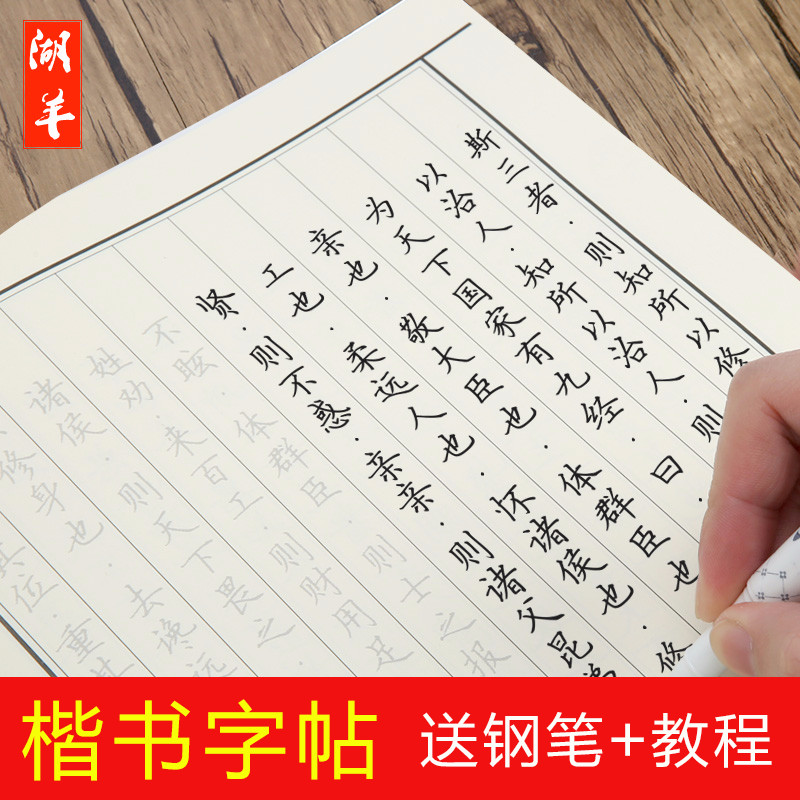 湖羊
斯三者·则知所以修
以治人·知所以治人·则
为天下国家有九经·曰
亲也·敬大臣也·体群臣也
工也·柔远人也·怀诸侯也·修
贤·则不惑·亲亲·则诸父昆
不眩·体群臣·则士之报
姓劝·来百工·则财用足
诸侯·则天下畏之
修身也·去谗远
其位·重其
楷书字帖
送钢笔+教程